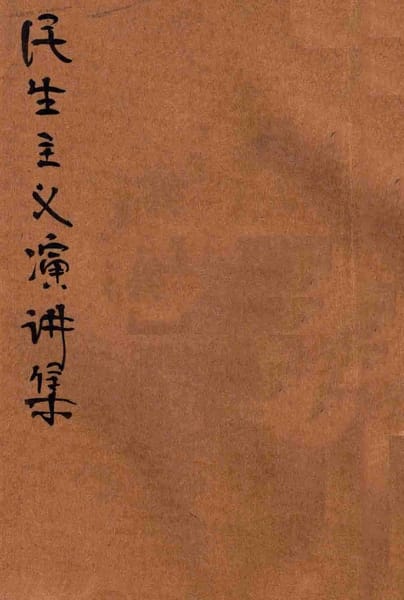 民生主义演讲集